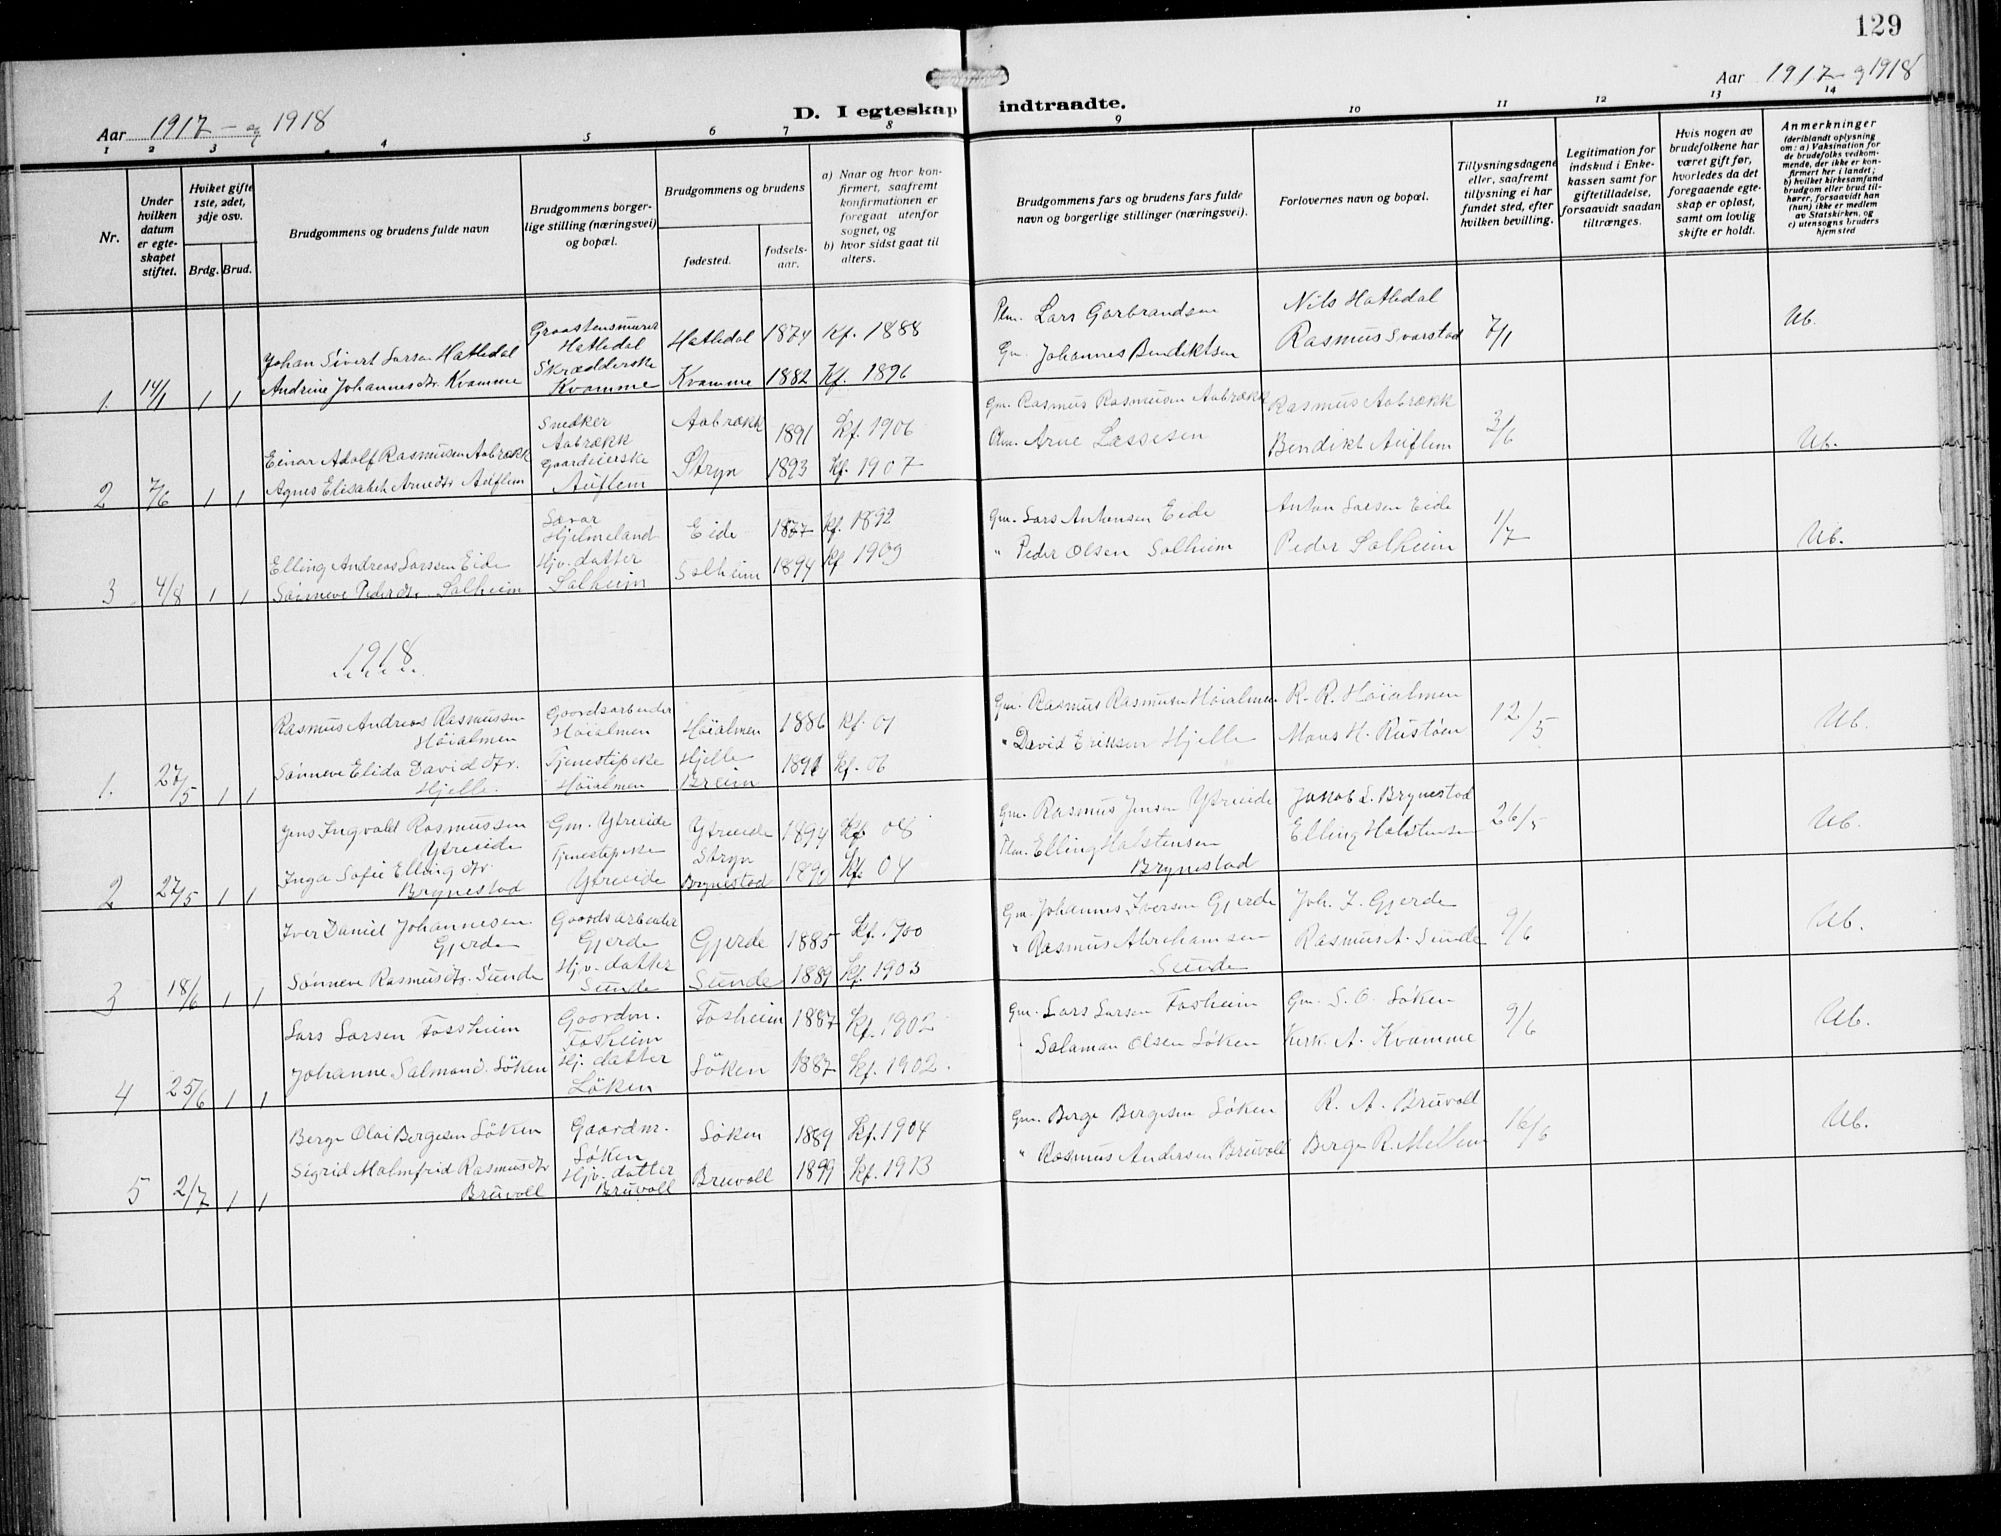 129
Aar 1917 - og 1918
D. I egteskap indtraadte.
Aar 1917 - og 1918
1 2 3 4 5 6 7 8 9 10 11 12 13 14
Nr.
Under hvilken datum er egteskapet stiftet.
Hviket gifte 1ste, 2det, 3dje osv.
Brdg. Brud.
Brudgommens og brudens fulde navn
Brudgommens borgerlige stilling (næringsvei) og bopæl.
Brudgommens og brudens
fødested.
fødselsaar.
a) Naar og hvor konfirmert, saafremt konfirmationen er foregaat utenfor sognet, og
b) hvor sidst gaat til alters.
Brudgommens fars og brudens fars fulde navn og borgerlige stillinger (næringsvei).
Forlovernes navn og bopæl.
Tillysningsdagene eller, saafremt tillysning ei har fundet sted, efter hvilken bevilling.
Legitimation for indskud i Enkekassen samt for giftetilladelse, forsaavidt saadan tiltrænges.
Hvis nogen av brudefolkene har været gift før, hvorledes da det foregaaende egteskap er opløst, samt om lovlig skifte er holdt.
Anmerkninger
(deriblandt oplysning om: a) Vaksination for de brudefolks vedkommende, der ikke er konfirmert her i landet; b) hvilket kirkesamfund brudgom eller brud tilhører, forsaavidt han (hun) ikke er medlem av Statskirken, og c) utensogns bruders hjemsted
1. 14/1 1 1
Johan Sivert Larsen Hatledal Graastensmurer Hatledal Hatledal 1874 Kf. 1888 Plm. Lars Garbrandsen Nils Hatledal 7/1 Ub.
Andrine Johannesdtr. Kvamme Skrædderske Kvamme Kvamme 1882 Kf. 1896 Gm. Johannes Bendiktsen Rasmus Svarstad
2 7/6 1 1
Einar Adolf Rasmussen Aabrækk Snedker Aabrækk Aabrækk 1891 Kf. 1906 Gm. Rasmus Rasmussen Aabrækk Rasmus Aabrækk 3/6 Ub.
Agnes Elisabeth Arnedtr Auflem Gaardeierske Auflem Stryn 1893 Kf. 1907 Plm. Arne Lassesen Bendikt Auflem
3 4/8 1 1
Elling Andreas Larssen Eide Hjelmeland Eide 1877 Kf. 1892 Gm. Lars Antonsen Eide Anton Larsen Eide 1/7 Ub.
Sønneve Pedersdtr Solheim Hjv. datter Solheim Solheim 1894 Kf 1909 " Peder Olsen Solheim Peder Solheim
1918
1. 27/5 1 1
Rasmus Andreas Rasmussen Høialmen Gaardsarbeider Høialmen Høialmen 1886 Kf. 01 Gm. Rasmus Rasmusen Høialmen R. R. Høialmen 12/5 Ub.
Sønneve Elida Davidsdtr. Hjelle. Tjenestepike Høialmen Hjelle Breim 1891 Kf. 06 " David Eriksen Hjelle Mons H. Rustøen
2 27/5 1 1
Jens Ingvald Rasmussen Ytreeide Gm. Ytreeide Ytreeide Stryn 1894 Kf. 08 Gm. Rasmus Jensen Ytreeide Jakob L. Brynestad 26/5 Ub.
Inga Sofie Ellingdtr Brynestad Tjenestepike Ytreeide Brynestad 1890 Kf. 04 Plm. Elling Halstensen Brynestad Elling Halstensen
3 18/6 1 1
Iver Daniel Johannesen Gjerde Gaardsarbeider Gjerde Gjerde 1885 Kf. 1900 Gm. Johannes Iversen Gjerde Joh. I. Gjerde 9/6 Ub.
Sønneve Rasmusdtr. Sunde Hjv. datter Sunde Sunde 1889 Kf. 1903 " Rasmus Abrahamsen Sunde Rasmus A. Sunde
4 25/6 1 1
Lars Larsen Fossheim Gaardm. Fosheim Fosheim 1887 Kf. 1902 Gm. Lars Larsen Fosheim Gm. S. O. Løken 9/6 Ub.
Johanne Salmond. Løken Hj. datter Løken Løken 1887 Kf. 1902. Salamon Olsen Løken A. Kvamme
5 2/7 1 1
Berge Olai Bergesen Løken Gaardm. Løken Løken 1889 Kf. 1904 Gm. Berge Bergesen Løken R. A. Bruvoll 16/6 Ub.
Sigrid Malmfrid Rasmusdtr Bruvoll Hjv. datter Bruvoll Bruvoll 1899 Kf. 1913 " Rasmus Andersen Bruvoll Berge R. Mellem